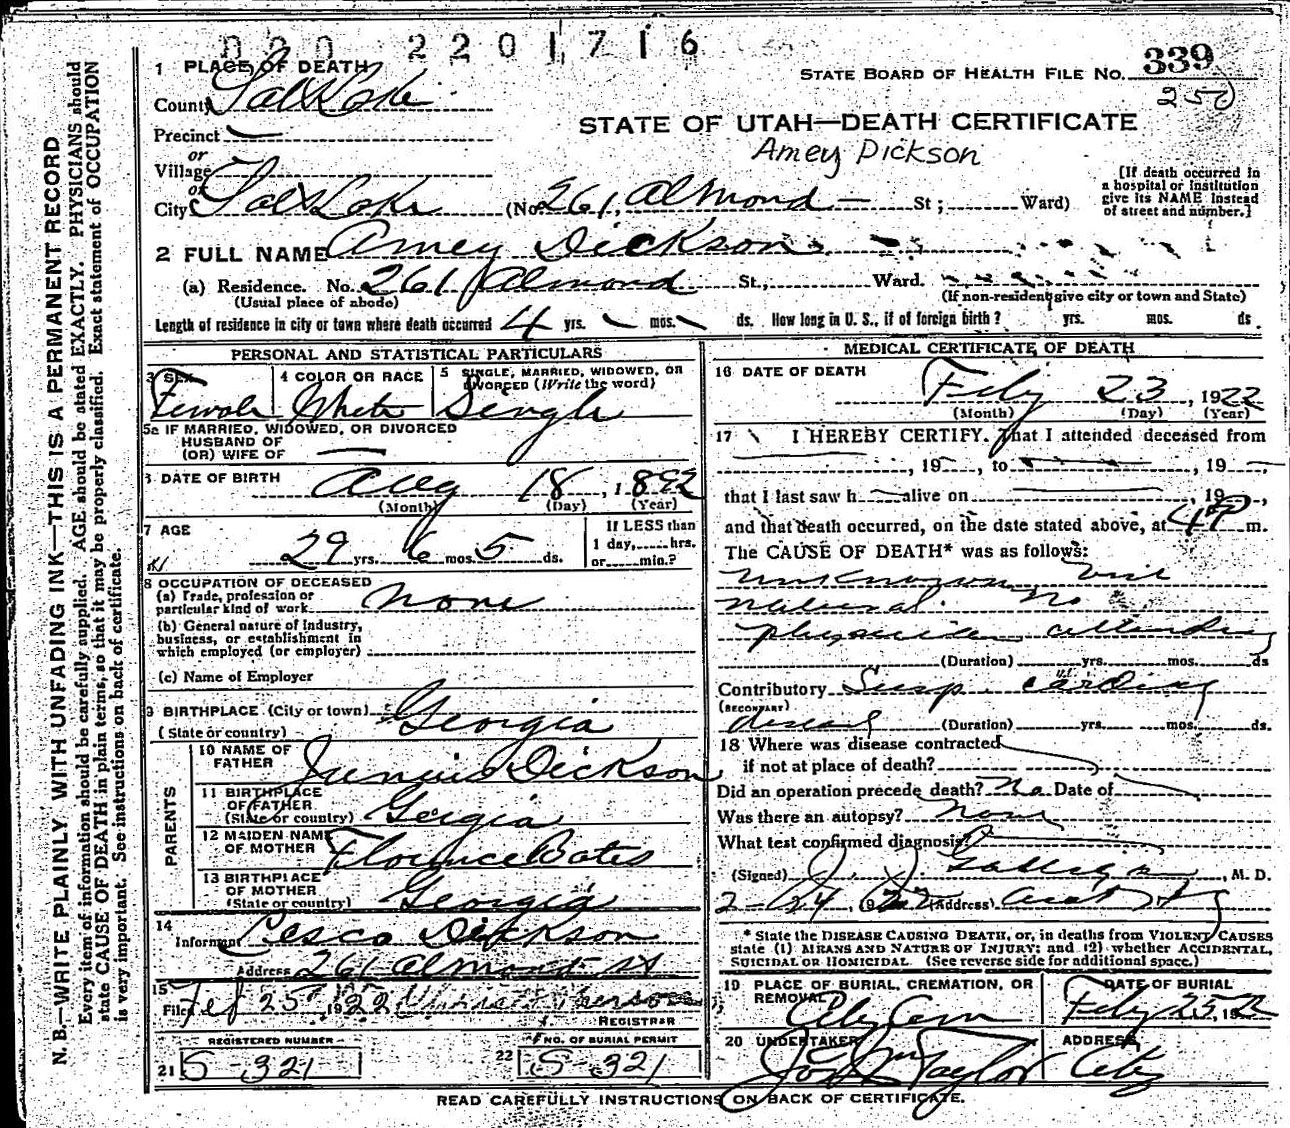 020 2201716
1 PLACE OF DEATH
STATE BOARD OF HEALTH FILE No. 339
250
County Salt Lake
STATE OF UTAH—DEATH CERTIFICATE
Precinct —
Amey Dickson
or
Village
or
City Salt Lake (No. 261 Almond — St; Ward)
[If death occurred in
a hospital or institution
give its NAME instead
of street and number.]
2 FULL NAME Amey Dickson
(a) Residence. No. 261 Almond St., Ward.
(Usual place of abode) (If non-resident give city or town and State)
Length of residence in city or town where death occurred 4 yrs. — mos. — ds. How long in U. S., if of foreign birth? yrs. mos. ds.
PERSONAL AND STATISTICAL PARTICULARS
3 SEX Female
4 COLOR OR RACE White
5 SINGLE, MARRIED, WIDOWED, OR
DIVORCED (Write the word) Single
5a IF MARRIED, WIDOWED, OR DIVORCED
HUSBAND OF
(OR) WIFE OF —
6 DATE OF BIRTH Aug 18, 1892
(Month) (Day) (Year)
7 AGE 29 yrs. 6 mos. 5 ds.
If LESS than
1 day, hrs.
or min.?
8 OCCUPATION OF DECEASED
(a) Trade, profession or
particular kind of work None
(b) General nature of Industry,
business, or establishment in
which employed (or employer)
(c) Name of Employer
9 BIRTHPLACE (City or town)
(State or country) Georgia
PARENTS
10 NAME OF
FATHER Junius Dickson
11 BIRTHPLACE
OF FATHER
(State or country) Georgia
12 MAIDEN NAME
OF MOTHER Florence Bates
13 BIRTHPLACE
OF MOTHER
(State or country) Georgia
14 Informant Cesco Dickson
Address 261 Almond St
15 Filed Feb 25, 1922
REGISTRAR
REGISTERED NUMBER
21 S-321
No. OF BURIAL PERMIT
22 S-321
MEDICAL CERTIFICATE OF DEATH
16 DATE OF DEATH
Feby 23, 1922
(Month) (Day) (Year)
17 I HEREBY CERTIFY. That I attended deceased from
, 19 , to , 19 ,
that I last saw h alive on , 19 ,
and that death occurred, on the date stated above, at 4 P m.
The CAUSE OF DEATH* was as follows:
unknown but
natural. No
physician attending
(Duration) yrs. mos. ds
Contributory Susp. cardiac
(SECONDARY)
disease (Duration) yrs. mos. ds.
18 Where was disease contracted
if not at place of death?
Did an operation precede death? No Date of
Was there an autopsy? None
What test confirmed diagnosis?
(Signed) J. J. Galligan, M. D.
2-24, 1922 (Address)
* State the DISEASE CAUSING DEATH, or, in deaths from VIOLENT CAUSES
state (1) MEANS AND NATURE OF INJURY; and (2) whether ACCIDENTAL,
SUICIDAL OR HOMICIDAL. (See reverse side for additional space.)
19 PLACE OF BURIAL, CREMATION, OR
REMOVAL City Cem
DATE OF BURIAL
Feby 25, 1922
20 UNDERTAKER Jos Wm Taylor
ADDRESS City
READ CAREFULLY INSTRUCTIONS ON BACK OF CERTIFICATE.
N. B.—WRITE PLAINLY WITH UNFADING INK—THIS IS A PERMANENT RECORD
Every item of information should be carefully supplied. AGE should be stated EXACTLY. PHYSICIANS should
state CAUSE OF DEATH in plain terms, so that it may be properly classified. Exact statement of OCCUPATION
is very important. See instructions on back of certificate.